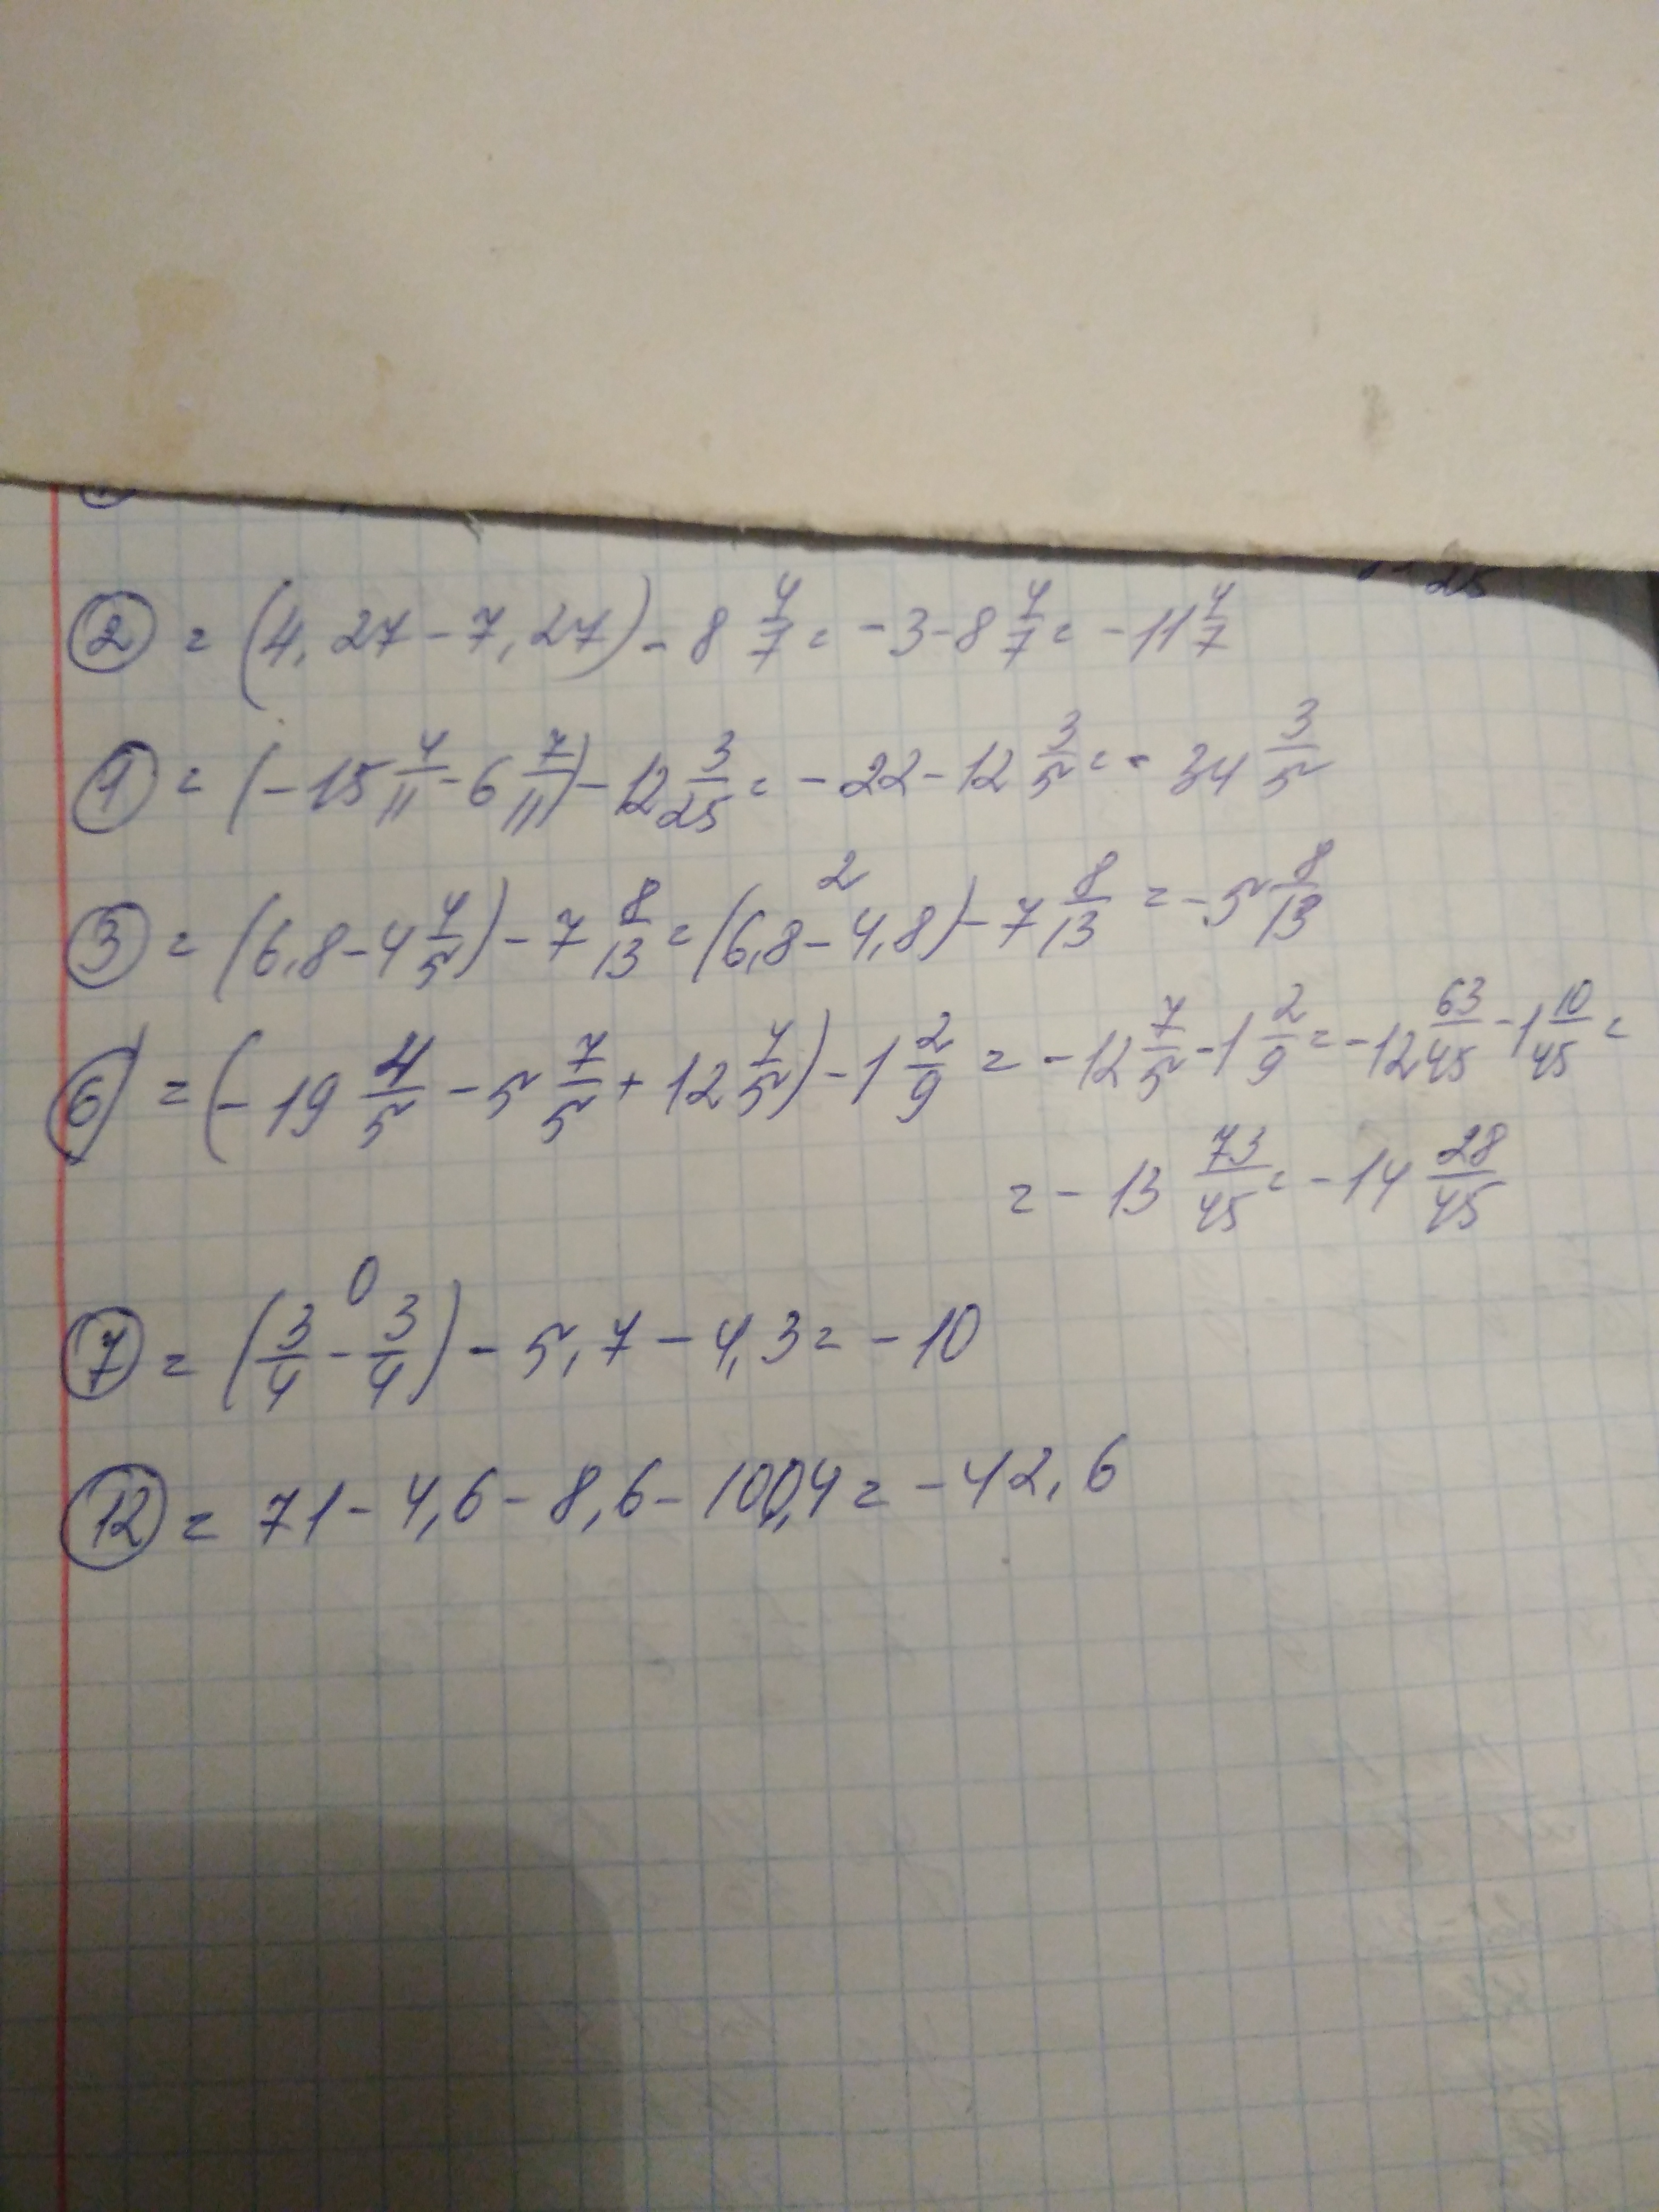 25
② = (4,27 - 7,27) - 8 4/7 = -3 - 8 4/7 = -11 4/7
① = (-15 4/11 - 6 7/11) - 12 3/25 = -22 - 12 3/5 = -34 3/5
③ = (6,8 - 4 4/5) - 7 8/13 = (6,8 - 4,8) 2 - 7 8/13 = -5 8/13
⑥ = (-19 4/5 - 5 7/5 + 12 4/5) - 1 2/9 = -12 7/5 - 1 2/9 = -12 63/45 - 1 10/45 =
= -13 73/45 = -14 28/45
⑦ = (3/4 - 3/4) 0 - 5,7 - 4,3 = -10
⑫ = 71 - 4,6 - 8,6 - 100,4 = -42,6